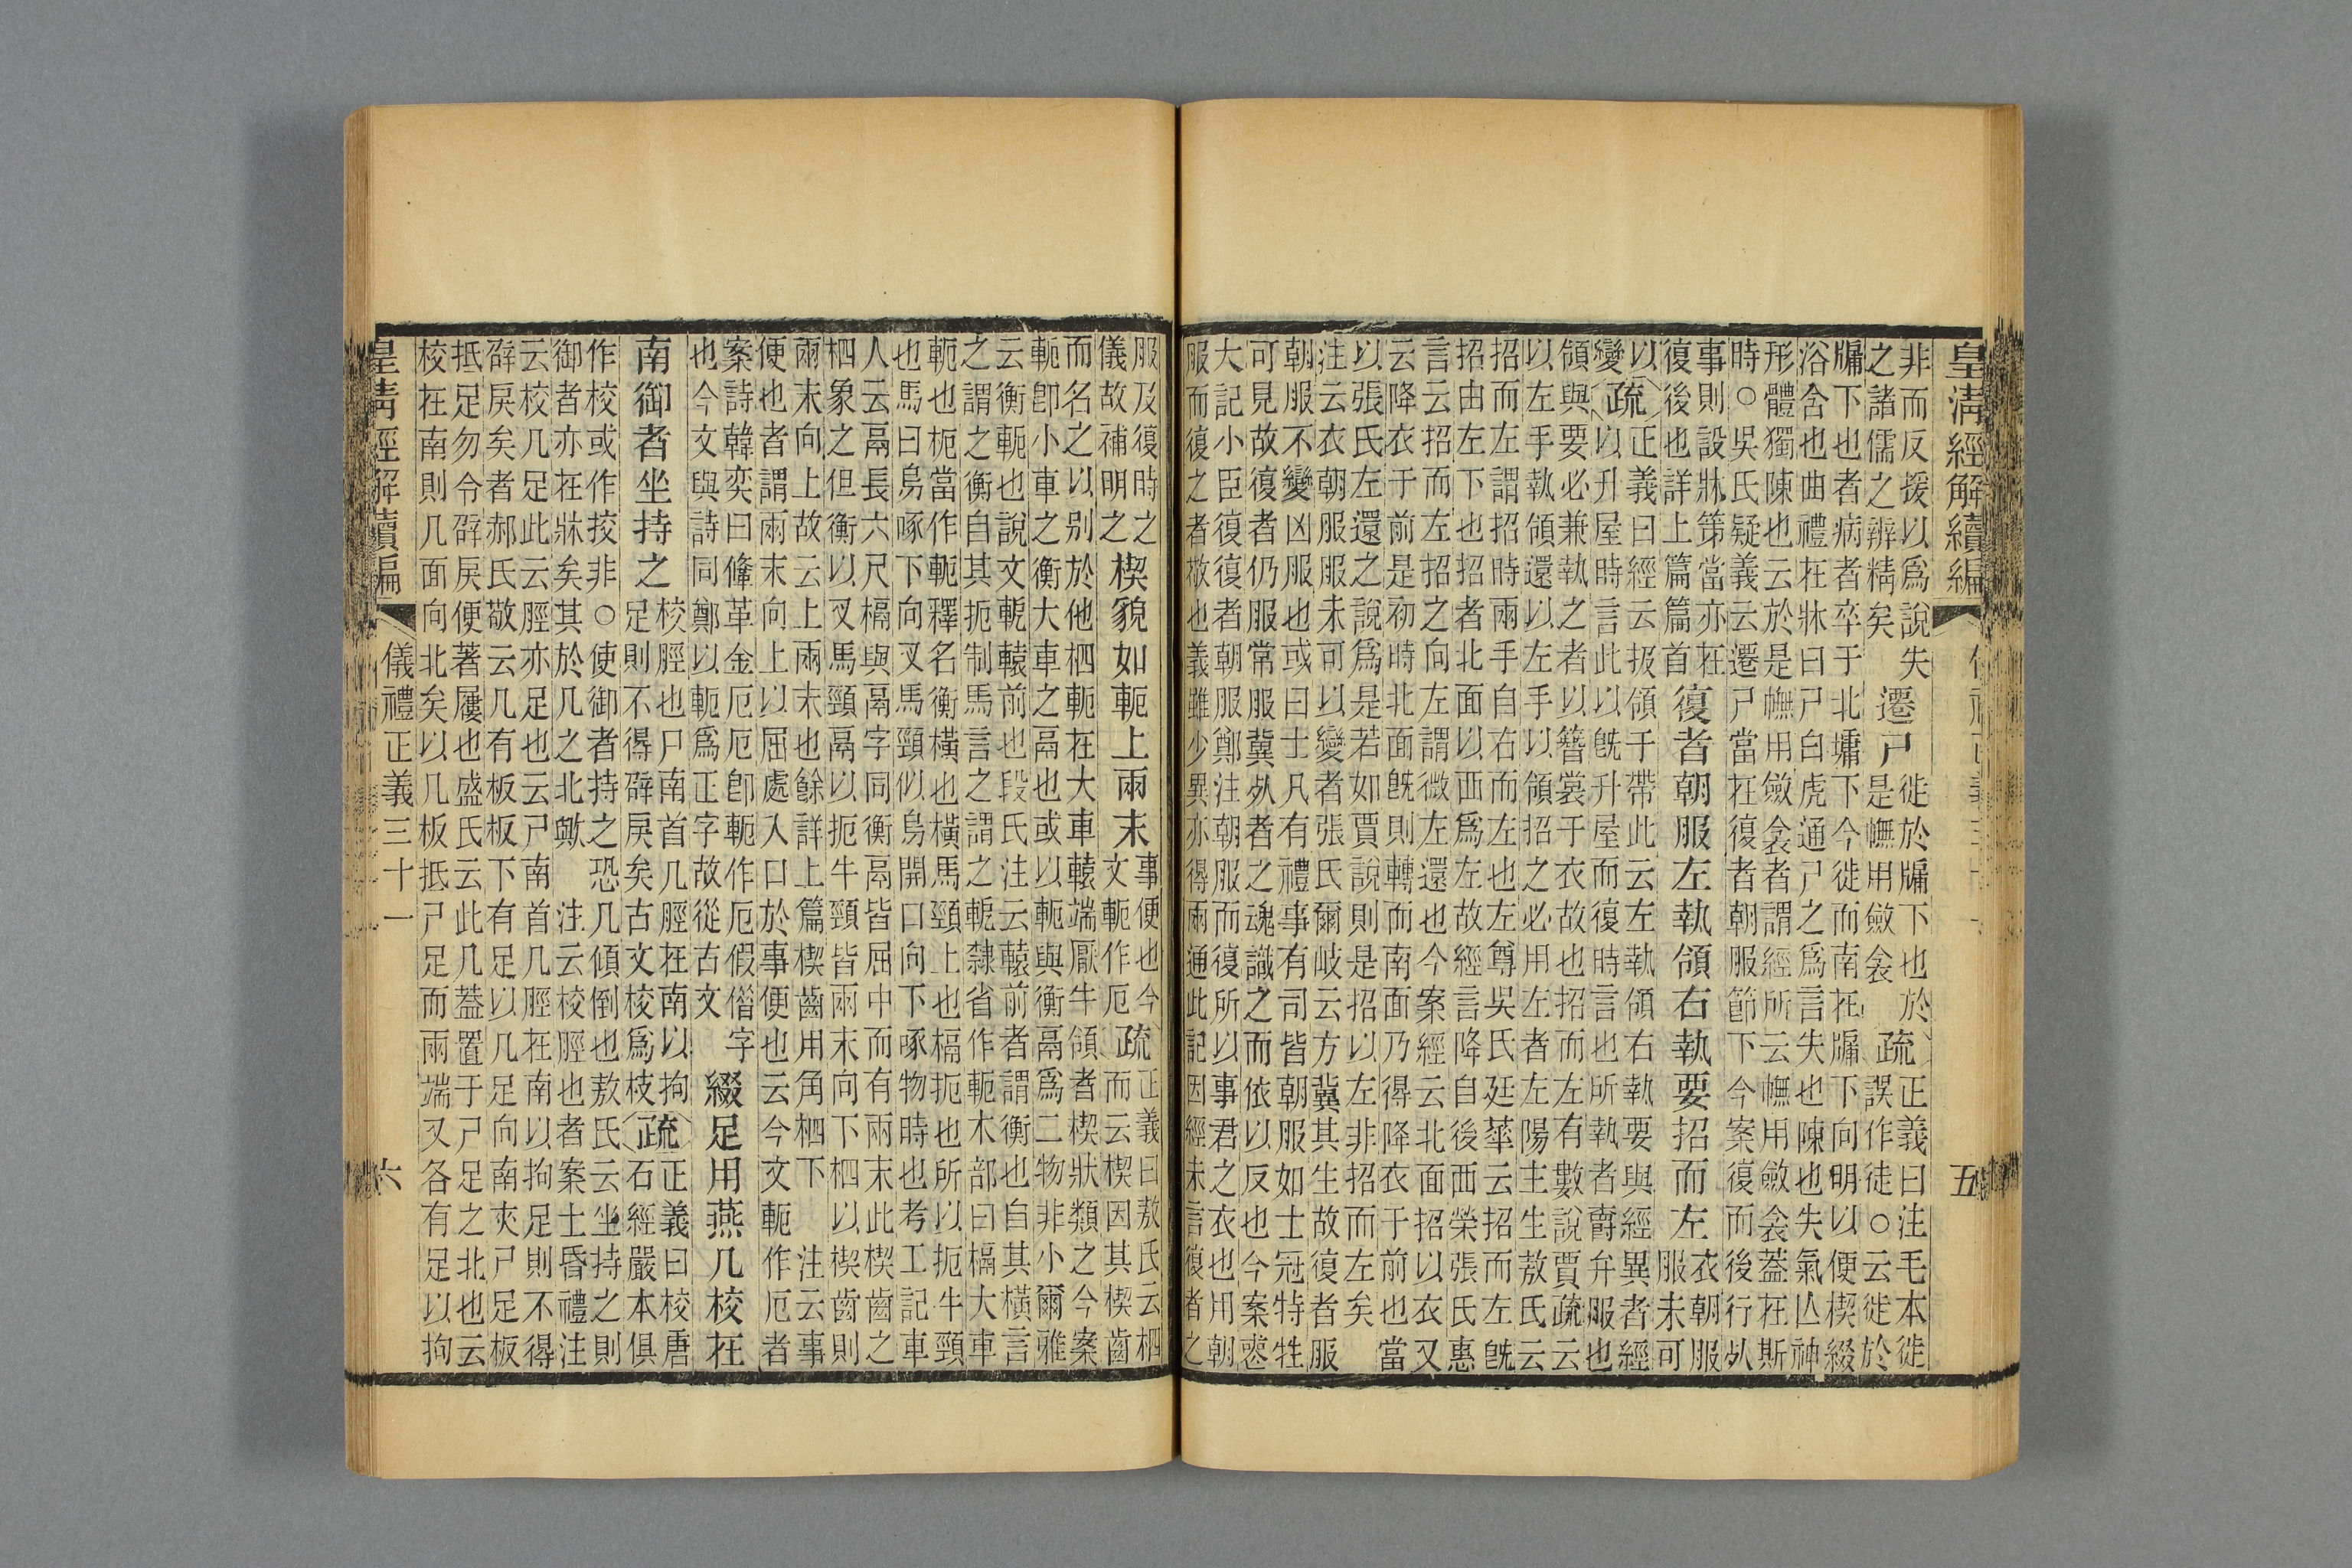 皇清經解續編
五
非而反援以爲說失
之諸儒之辨精矣
遷尸
徙於牖下也於
是幠用斂衾
疏
正義曰注毛本徙
誤作徒○云徙於
牖下也者病者卒于北墉下今徙而南在牖下向明以便楔綴
浴含也曲禮在牀曰尸白虎通尸之爲言失也陳也失氣亾神
形體獨陳也云於是幠用斂衾者謂經所云幠用斂衾蓋在斯
時○吳氏疑義云遷尸當在復者朝服節下今案復而後行死
事則設牀第當亦在
復後也詳上篇篇首
復者朝服左執領右執要招而左
衣朝服
服未可
以
變
疏
正義曰經云扱領于帶此云左執領右執要與經異者經
以升屋時言此以旣升屋而復時言也所執者爵弁服也
領與要必兼執之者以簪裳于衣故也招而左有數說賈疏云
以左手執領還以左手以領招之必用左者左陽主生敖氏云
招而左謂招時兩手自右而左也左尊吳氏廷華云招而左旣
招由左下也招者北面以西爲左故經言降自後西榮張氏惠
言云招而左招之向左謂微左還也今案經云北面招以衣又
云降衣于前是初時北面旣則轉而南面乃得降衣于前也當
以張氏左還之說爲是若如賈說則是招以左非招而左矣
注云衣朝服服未可以變者張氏爾岐云方冀其生故復者服
朝服不變凶服也或曰士凡有禮事有司皆朝服如士冠特牲
可見故復者仍服常服冀死者之魂識之而依以反也今案喪
大記小臣復復者朝服鄭注朝服而復所以事君之衣也用朝
服而復之者敬也義雖少異亦得兩通此記因經未言復者之
服及復時之
儀故補明之
楔貌如軛上兩末
事便也今
文軛作厄
疏
正義曰敖氏云柶
而云楔因其楔齒
而名之以别於他柶軛在大車轅端厭牛領者楔狀類之今案
軛卽小車之衡大車之鬲也或以軛與衡鬲爲二物非小爾雅
云衡軛也說文輗轅前也段氏注云轅前者謂衡也自其橫言
之謂之衡自其扼制馬言之謂之輗隸省作軛木部曰槅大車
軛也枙當作軛釋名衡橫也橫馬頸上也槅扼也所以扼牛頸
也馬曰烏啄下向叉馬頸似烏開口向下啄物時也考工記車
人云鬲長六尺槅與鬲字同衡鬲皆屈中而有兩末此楔齒之
柶象之但衡以叉馬頸鬲以扼牛頸皆兩末向下柶以楔齒則
兩末向上故云上兩末也餘詳上篇楔齒用角柶下 注云事
便也者謂兩末向上以屈處入口於事便也云今文軛作厄者
案詩韓奕曰鞗革金厄厄卽軛作厄假借字
也今文與詩同鄭以軛爲正字故從古文
綴足用燕几校在
南御者坐持之
校脛也尸南首几脛在南以拘
足則不得辟戾矣古文校爲枝
疏
正義曰校唐
石經嚴本俱
作校或作挍非○使御者持之恐几傾倒也敖氏云坐持之則
御者亦在牀矣其於几之北歟 注云校脛也者案士昏禮注
云校几足此云脛亦足也云尸南首几脛在南以拘足則不得
辟戾矣者郝氏敬云几有板板下有足以几足向南夾尸足板
抵足勿令辟戾便著屨也盛氏云此几蓋置于尸足之北也云
校在南則几面向北矣以几板抵尸足而兩端又各有足以拘
皇清經解續編
儀禮正義三十一
六